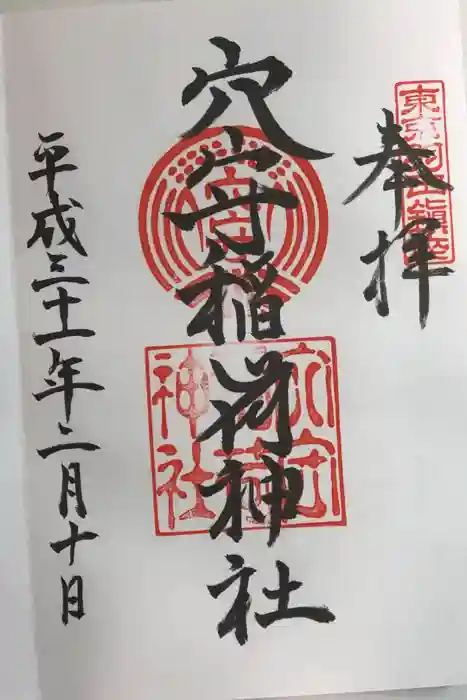 奉拝
東京羽田鎮座
穴守稲荷神社
穴守稲荷神社
平成三十一年二月十日